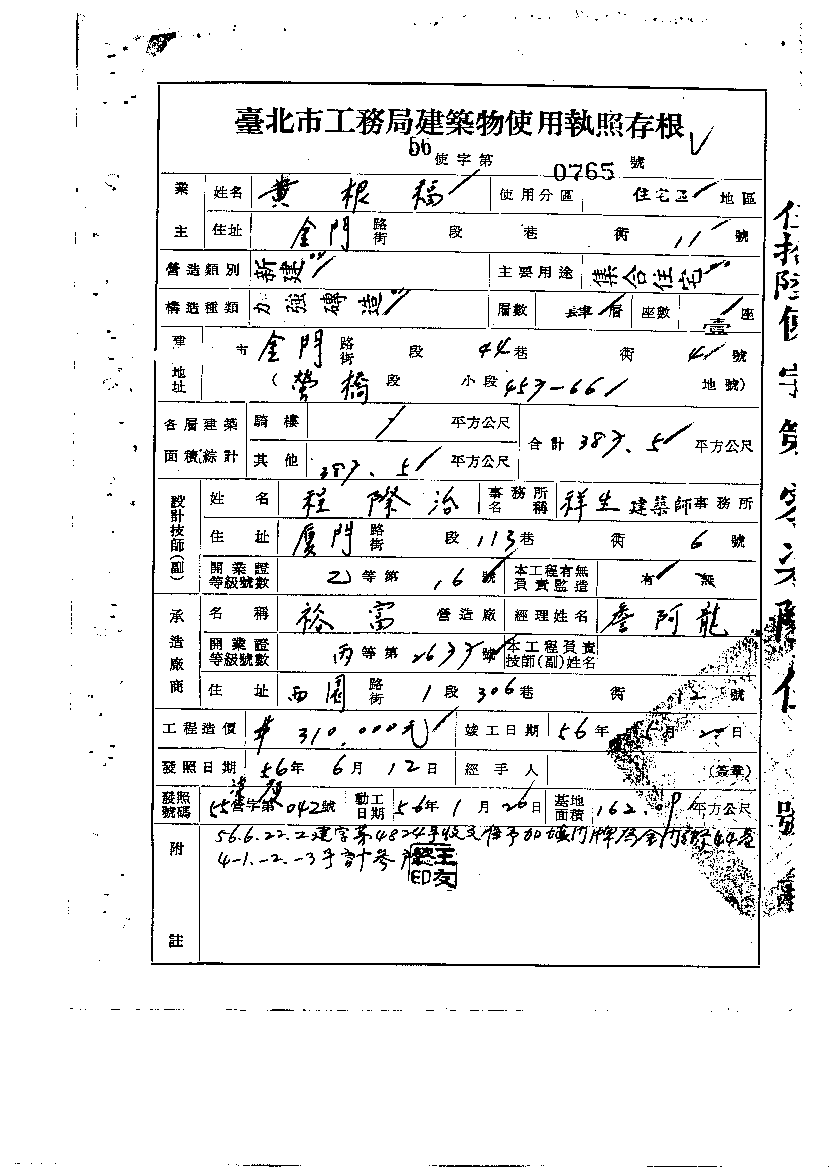 臺北市工務局建築物使用執照存根
56使字第0765號
業主 姓名 黃根福 使用分區 住宅區 地區
住址 金門 路街 段 巷 衖 11 號
營造類別 新建 主要用途 集合住宅
構造種類 加強磚造 層數 層 座數 壹座
建地址 市 金門 路街 段 44巷 衖 4 號
(螢橋段 小段 457-66 地號)
各層建築面積綜計 騎樓 平方公尺 合計 387.5 平方公尺
其他 387.5 平方公尺
設計技師(副) 姓名 程際治 事務所名稱 祥生建築師事務所
住址 廈門 路街 段 113巷 衖 6 號
開業證等級號數 乙等第16號 本工程有無負責監造 有 無
承造廠商 名稱 裕富 營造廠 經理姓名 詹阿龍
開業證等級號數 丙等第2637號 本工程負責技師(副)姓名
住址 西園 路街 1段 306巷 衖 12 號
工程造價 310,000元 竣工日期 56年5月 日
發照日期 56年6月12日 經手人 (簽章)
發照號碼 55營字第042號 動工日期 56年1月26日 基地面積 162.09平方公尺
附註 56.6.22.建字第4824號收文 門牌為金門路44巷
4-1.-2.-3号計